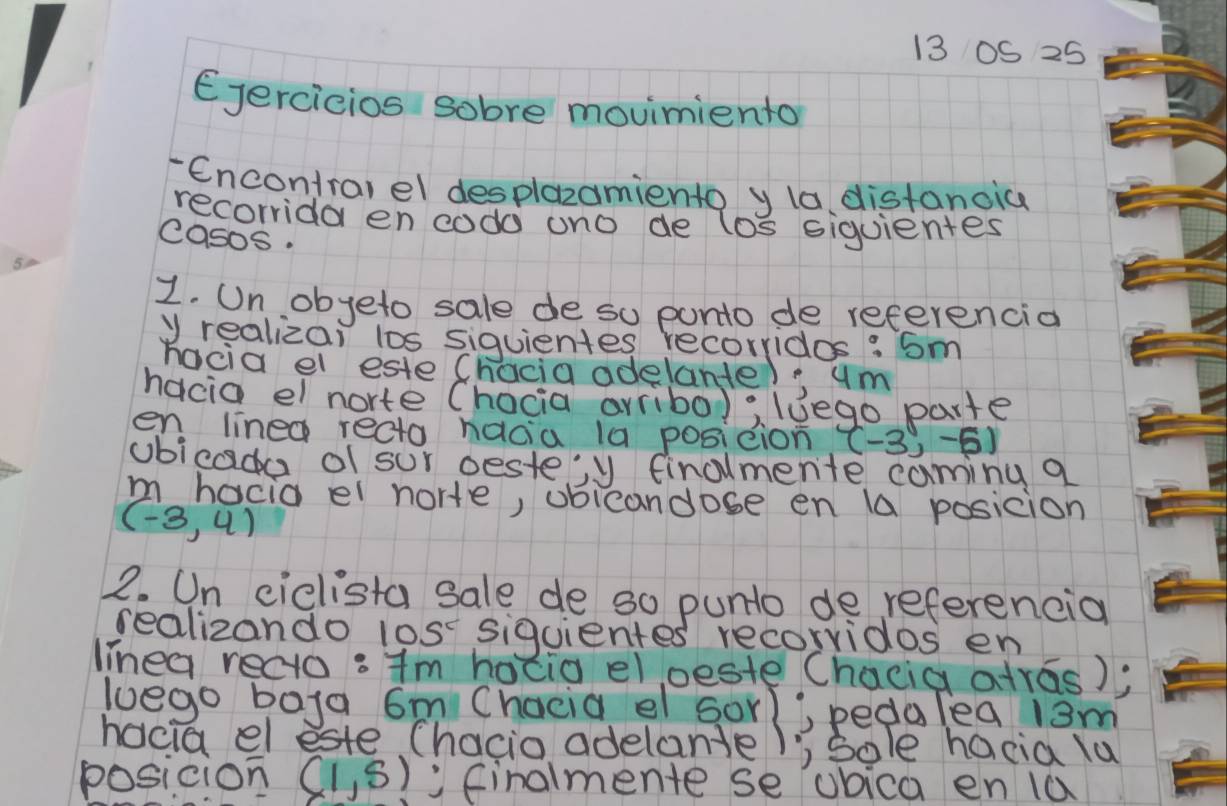 13/05/25
Ejercicios sobre movimiento
-Encontrar el desplazamiento y la distancia
recorrida en cada uno de los siguientes
casos.
1. Un objeto sale de su punto de referencia
y realizar los siguientes recorridos: 5m
hacia el este (hacia adelante); 4m
hacia el norte (hacia arriba); luego parte
en linea recta hacia la posicion (-3, -5)
ubicado al sur oeste; y finalmente camina 9
m hacia el norte, ubicandose en la posicion
(-3, 4)
2. Un ciclista sale de so punto de referencia
realizando los siguientes recorridos en
linea recta: 7m hacia el oeste (hacia atrás);
luego baja 6m (hacia el sor); pedalea 13m
hacia el este (hacia adelante); sale hacia la
posición (1,5); finalmente se ubica en la